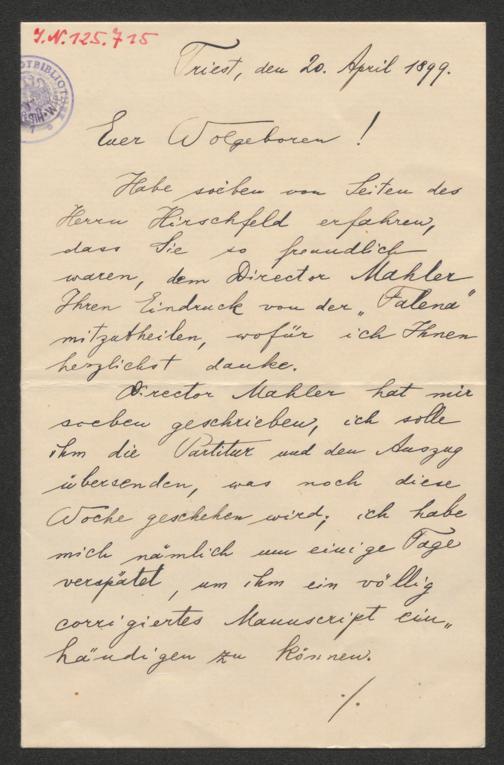 J.N.125.715
Triest, den 20. April 1899.
Euer Wolgeboren!
Habe soeben von Seiten des
Herrn Hirschfeld erfahren,
dass Sie so freundlich
waren, dem Director Mahler
Ihren Eindruck von der „Falena"
mitzutheilen, wofür ich Ihnen
herzlichst danke.
Director Mahler hat mir
soeben geschrieben, ich solle
ihm die Partitur und den Auszug
übersenden, was noch diese
Woche geschehen wird; ich habe
mich nämlich um einige Tage
verspätet, um ihm ein völlig
corrigiertes Manuscript ein„
händigen zu können.
./.